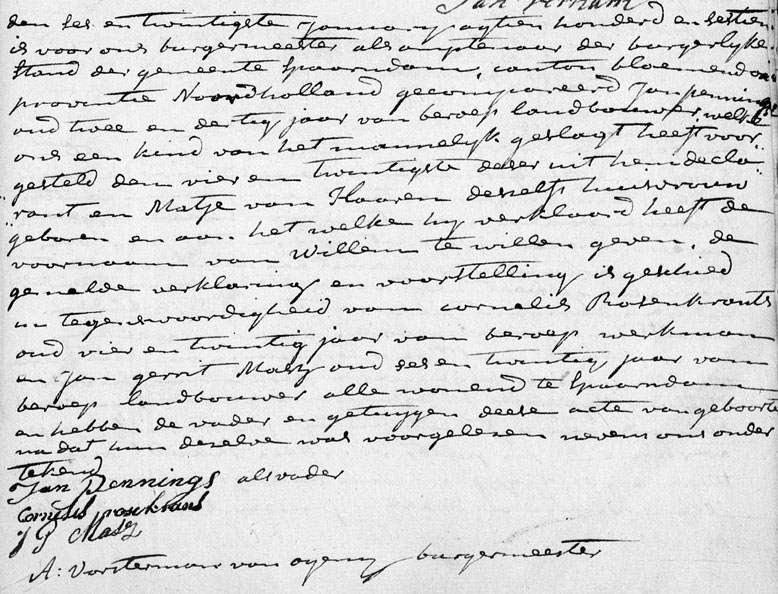 Jan Vernam
den ses en twintigste January agtien honderd en sestien
is voor ons burgermeester als amptenaar der burgerlyke
stand der gemeente Spaarndam, canton bloemend
provintie Noordholland gecompareerd Jan pennings
oud twee en dertig jaar van beroep landbouwer, welke
ons een kind van het mannelyk geslagt heeft voor
gesteld den vier en twintigste deser uit hem decla
rant en Matje van Haaren deszelfs huisvrouw
geboren en aan het welke hy verklaard heeft de
voornaam van Willem te willen geven, de
gemelde verklaring en voorstelling is geschied
in tegenswoordigheid vam cornelis Rosenkrants
oud vier en twintig jaar vam beroep werkman
en Jan gerrit Masz oud ses en twintig jaar vam
beroep landbouwer alle wonend te Spaarndam
en hebben de vader en getuygen deese acte van geboorte
na dat hun deselve was voorgelesen nevens ons onder
tekend
Jan Pennings als vader
Cornelis rosekrans
J G Masz
A: Vorsterman van oyen burgermeester